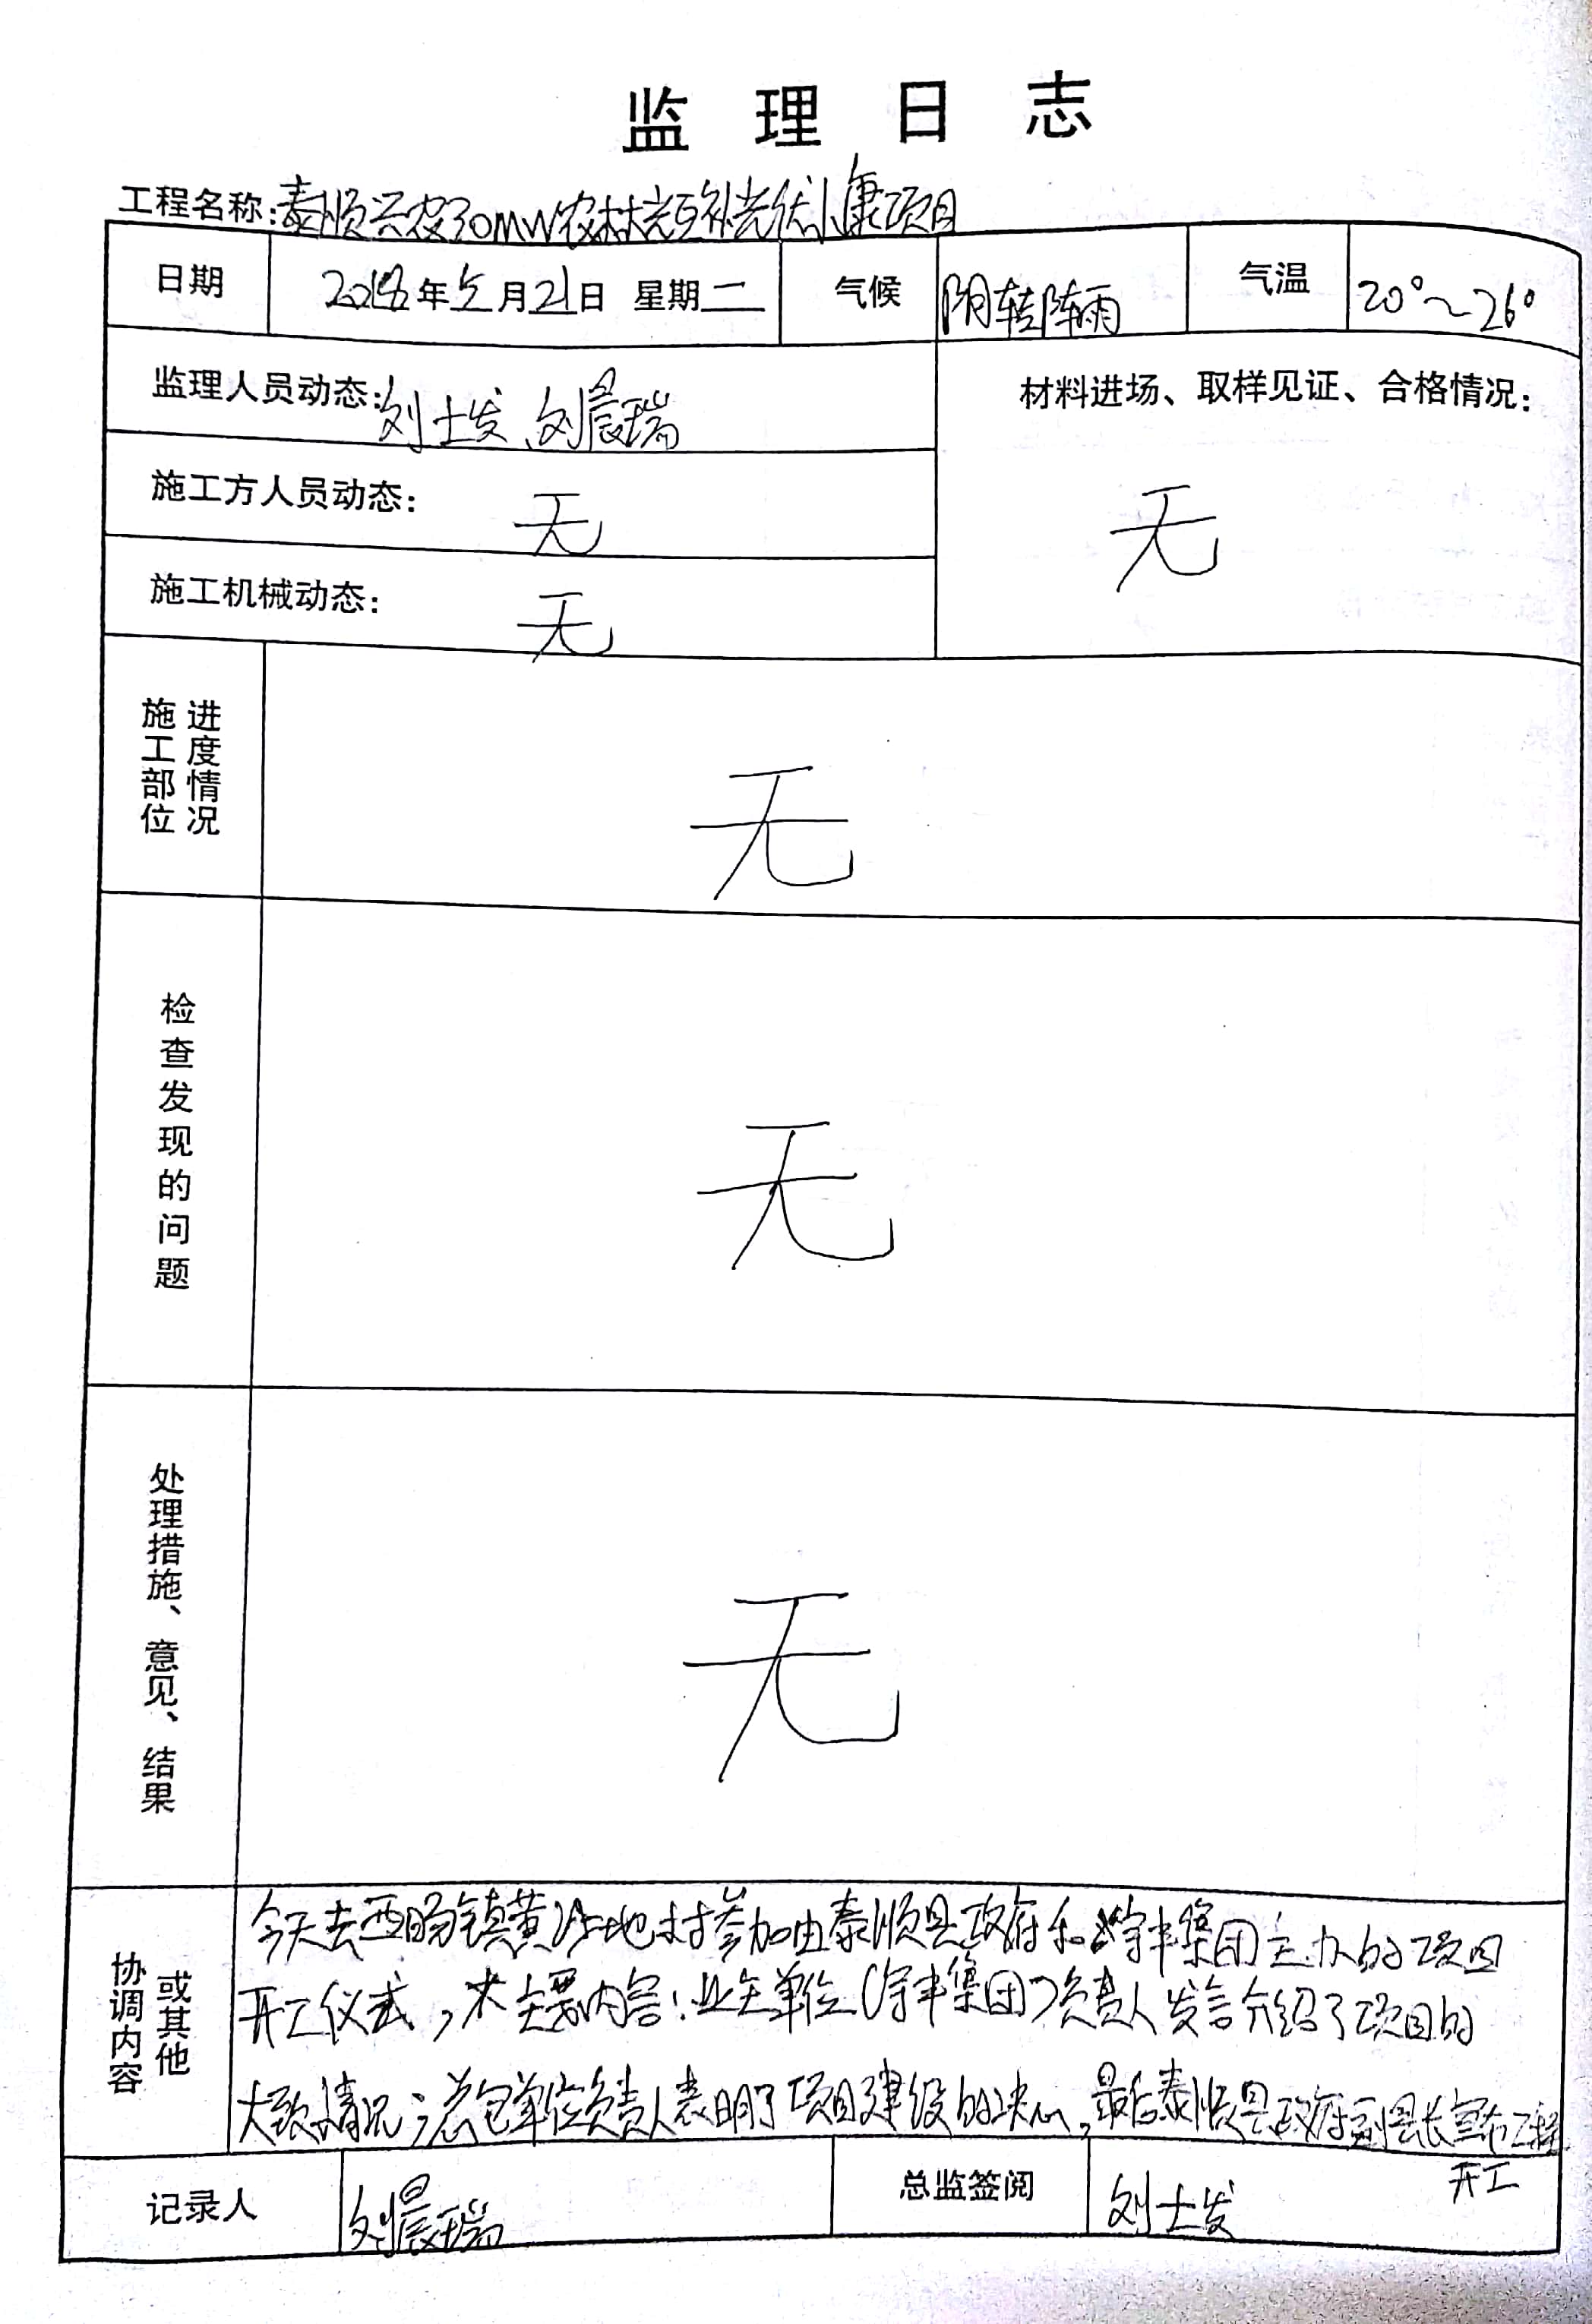 监理日志
工程名称:泰顺兴农30MW农林光互补光伏小康项目
日期 年五月21日 星期二 气候 阴转阵雨 气温 20°~26°
监理人员动态:刘士发、刘晨瑞 材料进场、取样见证、合格情况:
无
施工方人员动态: 无
施工机械动态: 无
施工部位 进度情况 无
检查发现的问题 无
处理措施、意见、结果 无
协调内容 或其他
今天去西旸镇黄 地村参加由泰顺县政府和 丰集团主办的项目
开工仪式,主要内容:业主单位( 丰集团)负责人发言介绍了项目的
大致情况;总包单位负责人表明了项目建设的决心,最后泰顺县政府副县长宣布工程
开工
记录人 刘晨瑞 总监签阅 刘士发